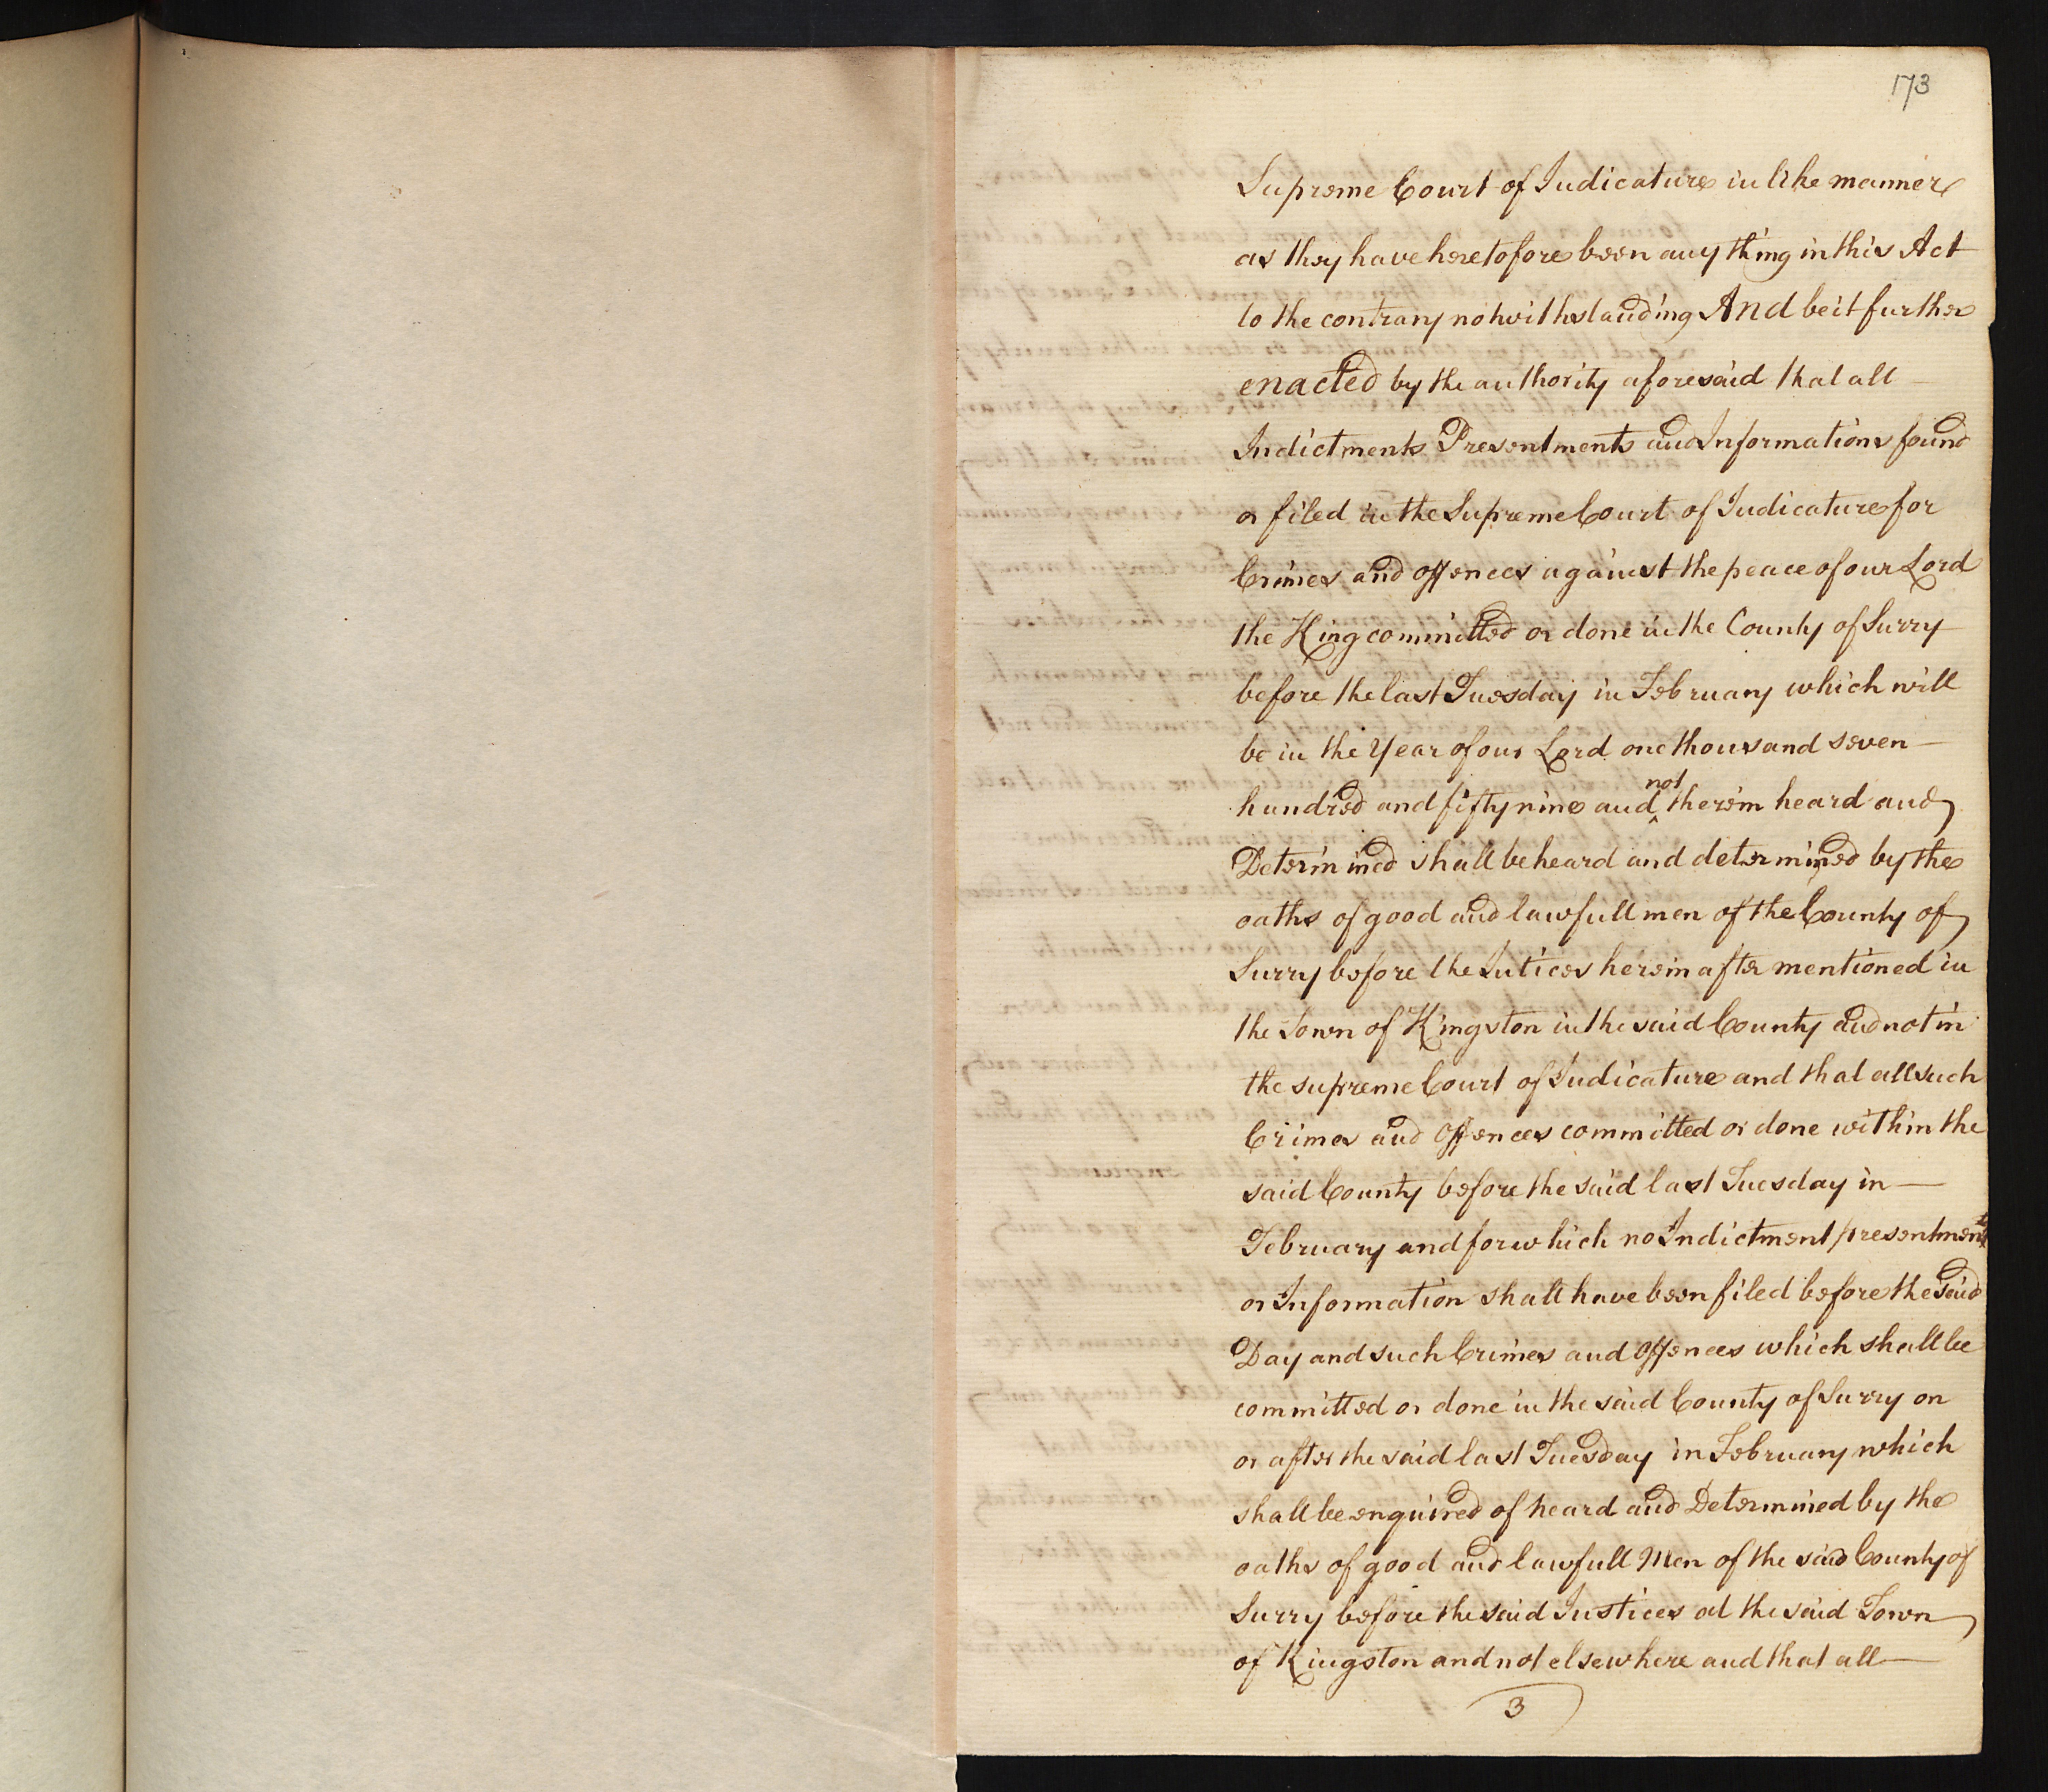 173
Supreme Court of Judicature in like manner
as they have heretofore been any thing in this Act
to the contrary notwithstanding And be it further
enacted by the authority aforesaid that all
Indictments Presentments and Informations found
or filed in the Supreme Court of Judicature for
Crimes and offences against the peace of our Lord
the King committed or done in the County of Surry
before the last Tuesday in February which will
be in the Year of our Lord one thousand seven
hundred and fifty nine and not therein heard and
Determined shall be heard and determined by the
oaths of good and lawfull men of the County of
Surry before the Jutices herein after mentioned in
the Town of Kingston in the said County and not in
the supreme Court of Judicature and that all such
Crimes and Offences committed or done within the
said County before the said last Tuesday in
February and for which no Indictment presentment
or Information shall have been filed before the said
Day and such Crimes and Offences which shall be
committed or done in the said County of Surry on
or after the said last Tuesday in February which
shall be enquired of heard and Determined by the
oaths of good and lawfull Men of the said County of
Surry before the said Justices at the said Town
of Kingston and not elsewhere and that all
3